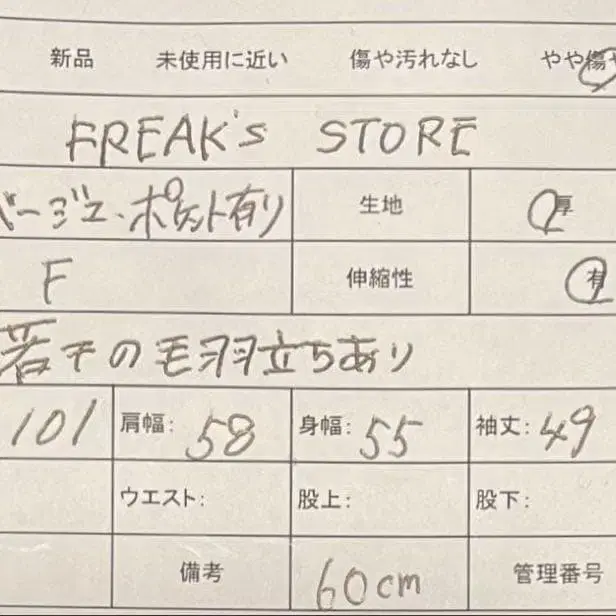 新品 未使用に近い 傷や汚れなし やや傷や
FREAK'S STORE
ベージュ・ポケット有り 生地 厚
F 伸縮性 有
若干の毛羽立ちあり
101 肩幅: 58 身幅: 55 袖丈: 49
ウエスト: 股上: 股下:
備考 60cm 管理番号